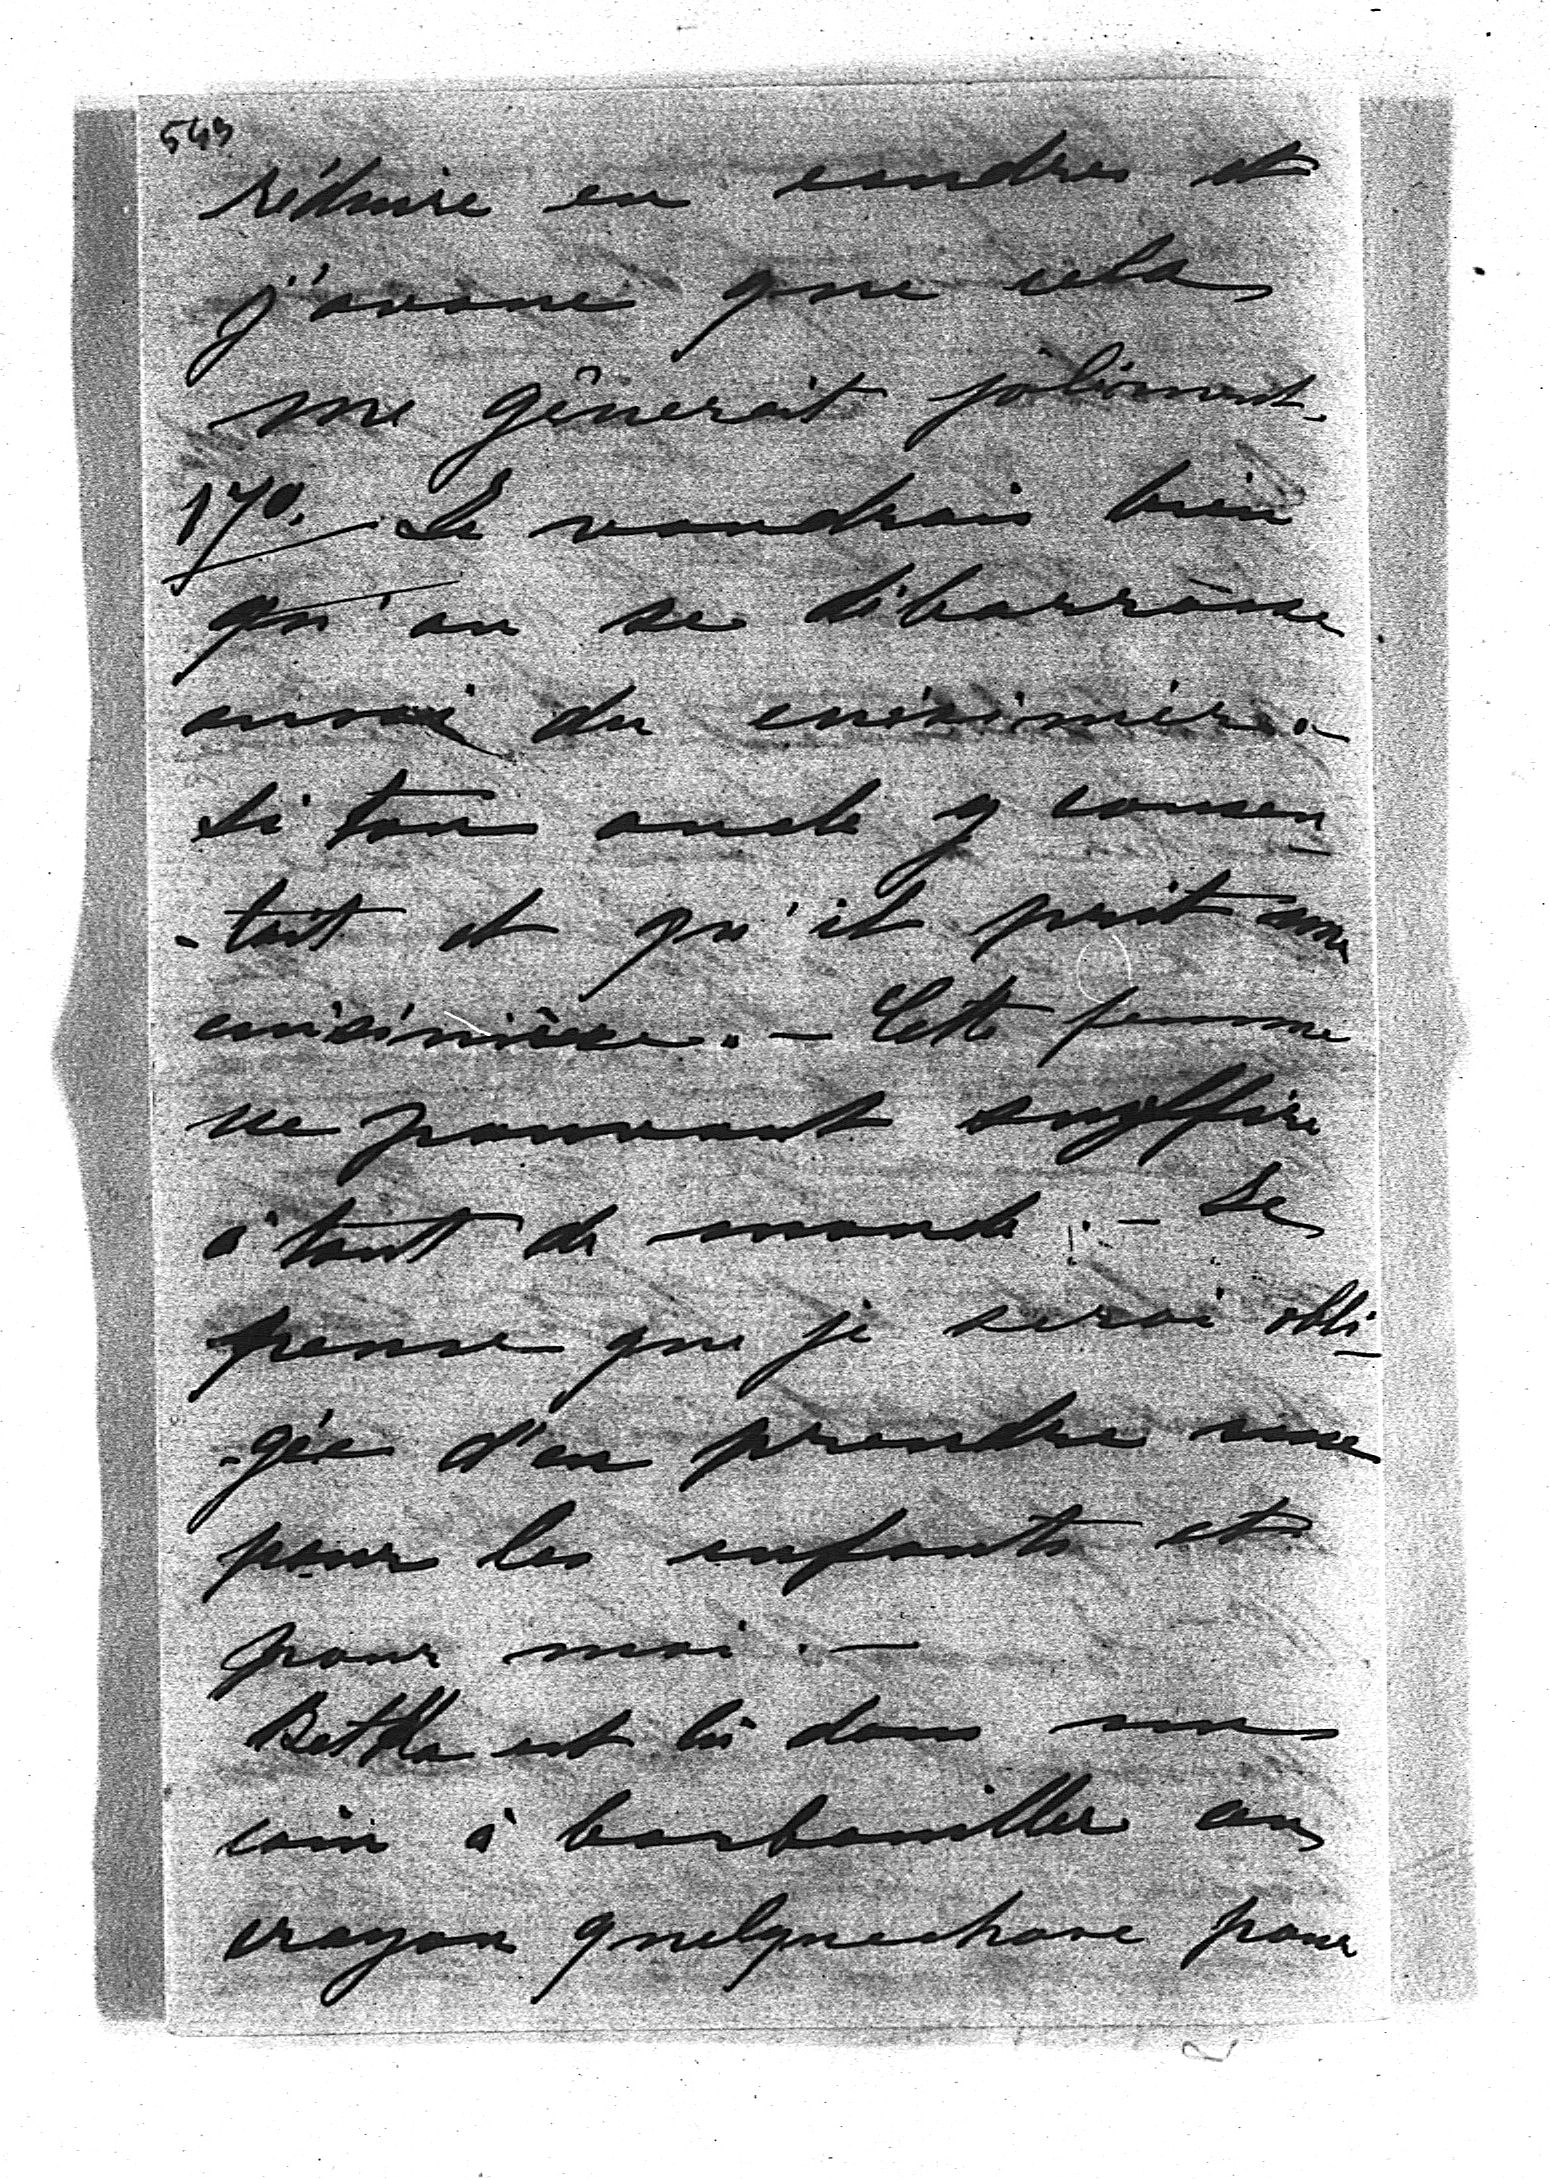 543
réduire en cendres et
j'avoue que cela
me gênerait joliment.
17°. Je voudrais bien
qu'on se débarrasse
aussi du cuisinier.
si ton oncle y consen
-tait et qu'il prit une
cuisinière. - Cette femme
ne pouvant suffire
à tant de monde. - Je
pense que je serai obli
-gée d'en prendre une
pour les enfants et
pour moi. -
Betka est là dans un
coin à barbouiller au
crayon quelquechose pour